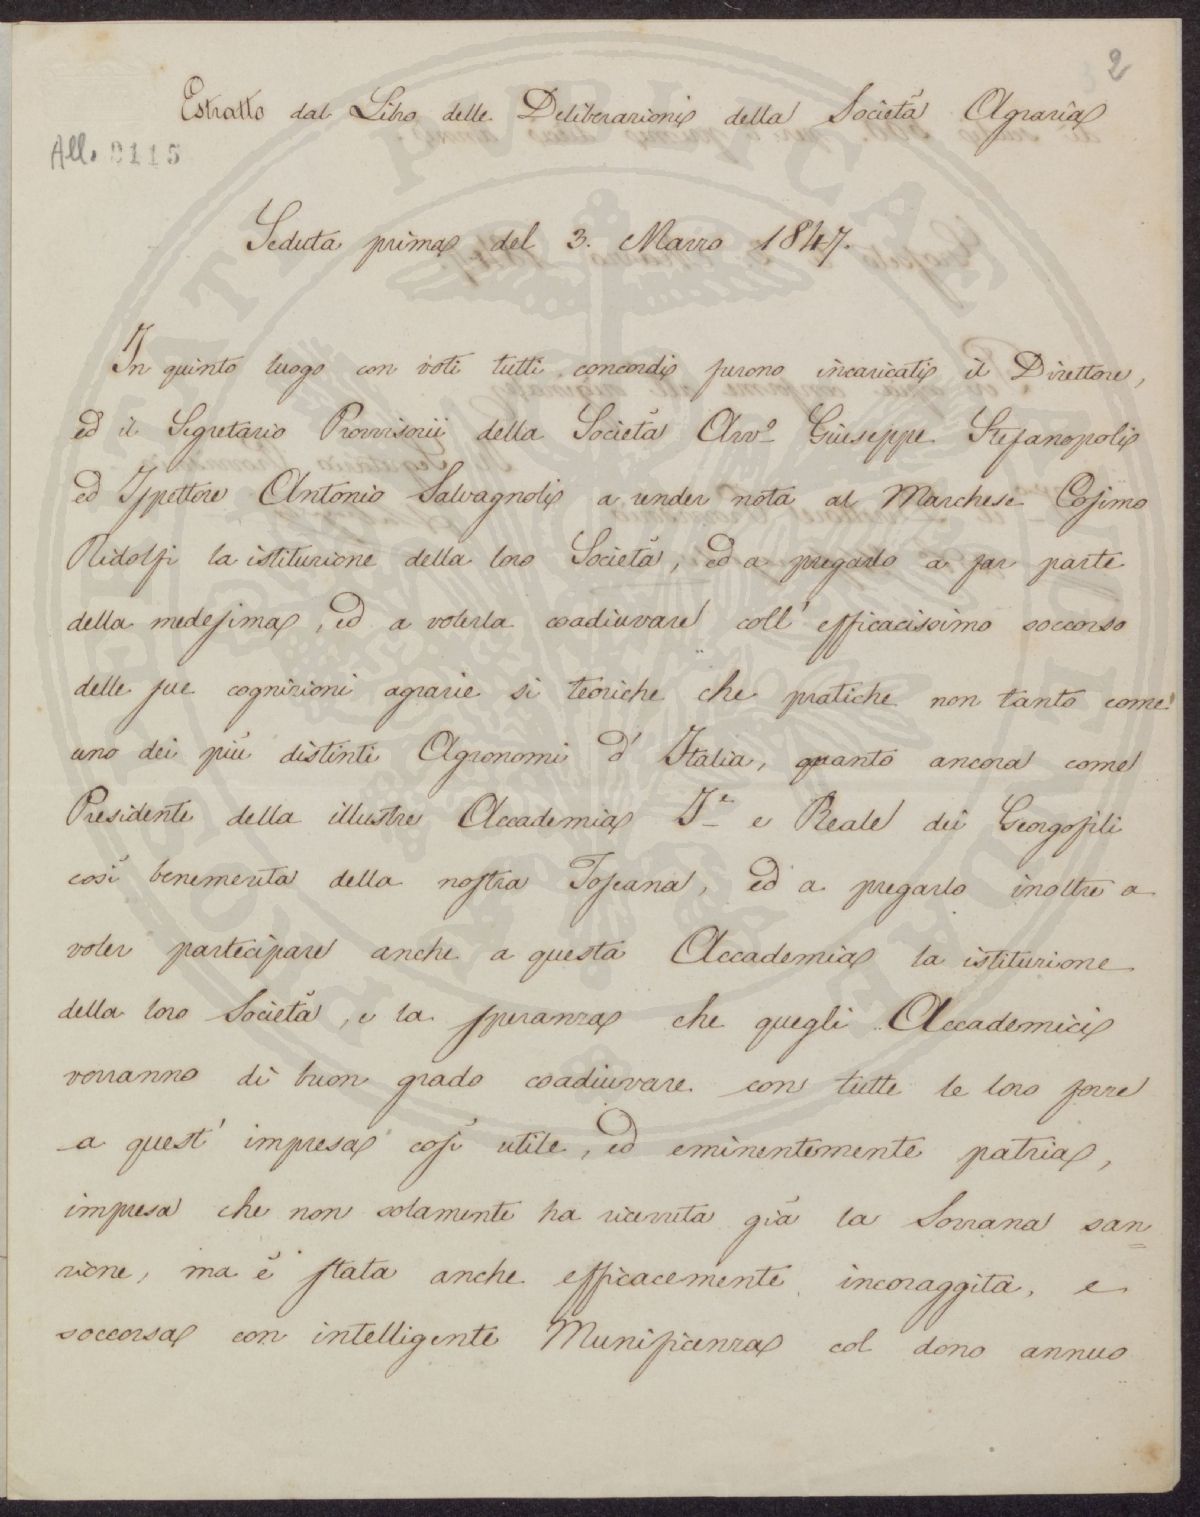 2
Estratto dal Libro delle Deliberazioni della Società Agraria
All. 0115
Seduta prima del 3. Marzo 1847.
In quinto luogo con voti tutti concordi furono incaricati il Direttore,
ed il Segretario Provvisorii della Società Avv.º Giuseppe Stefanopoli
ed Ispettore Antonio Salvagnoli a render nota al Marchese Cosimo
Ridolfi la istituzione della loro Società, ed a pregarlo a far parte
della medesima, ed a volerla coadiuvare coll' efficacissimo soccorso
delle sue cognizioni agrarie sì teoriche che pratiche non tanto come
uno dei più distinti Agronomi d' Italia, quanto ancora come
Presidente della illustre Accademia I.e e Reale dei Georgofili
così benemerita della nostra Toscana, ed a pregarlo inoltre a
voler partecipare anche a questa Accademia la istituzione
della loro Società, e la speranza che quegli Accademici
vorranno di buon grado coadiuvare con tutte le loro forze
a quest' impresa così utile, ed eminentemente patria,
impresa che non solamente ha ricevuta già la Sovrana san=
zione, ma è stata anche efficacemente incoraggita, e
soccorsa con intelligente Munificenza col dono annuo